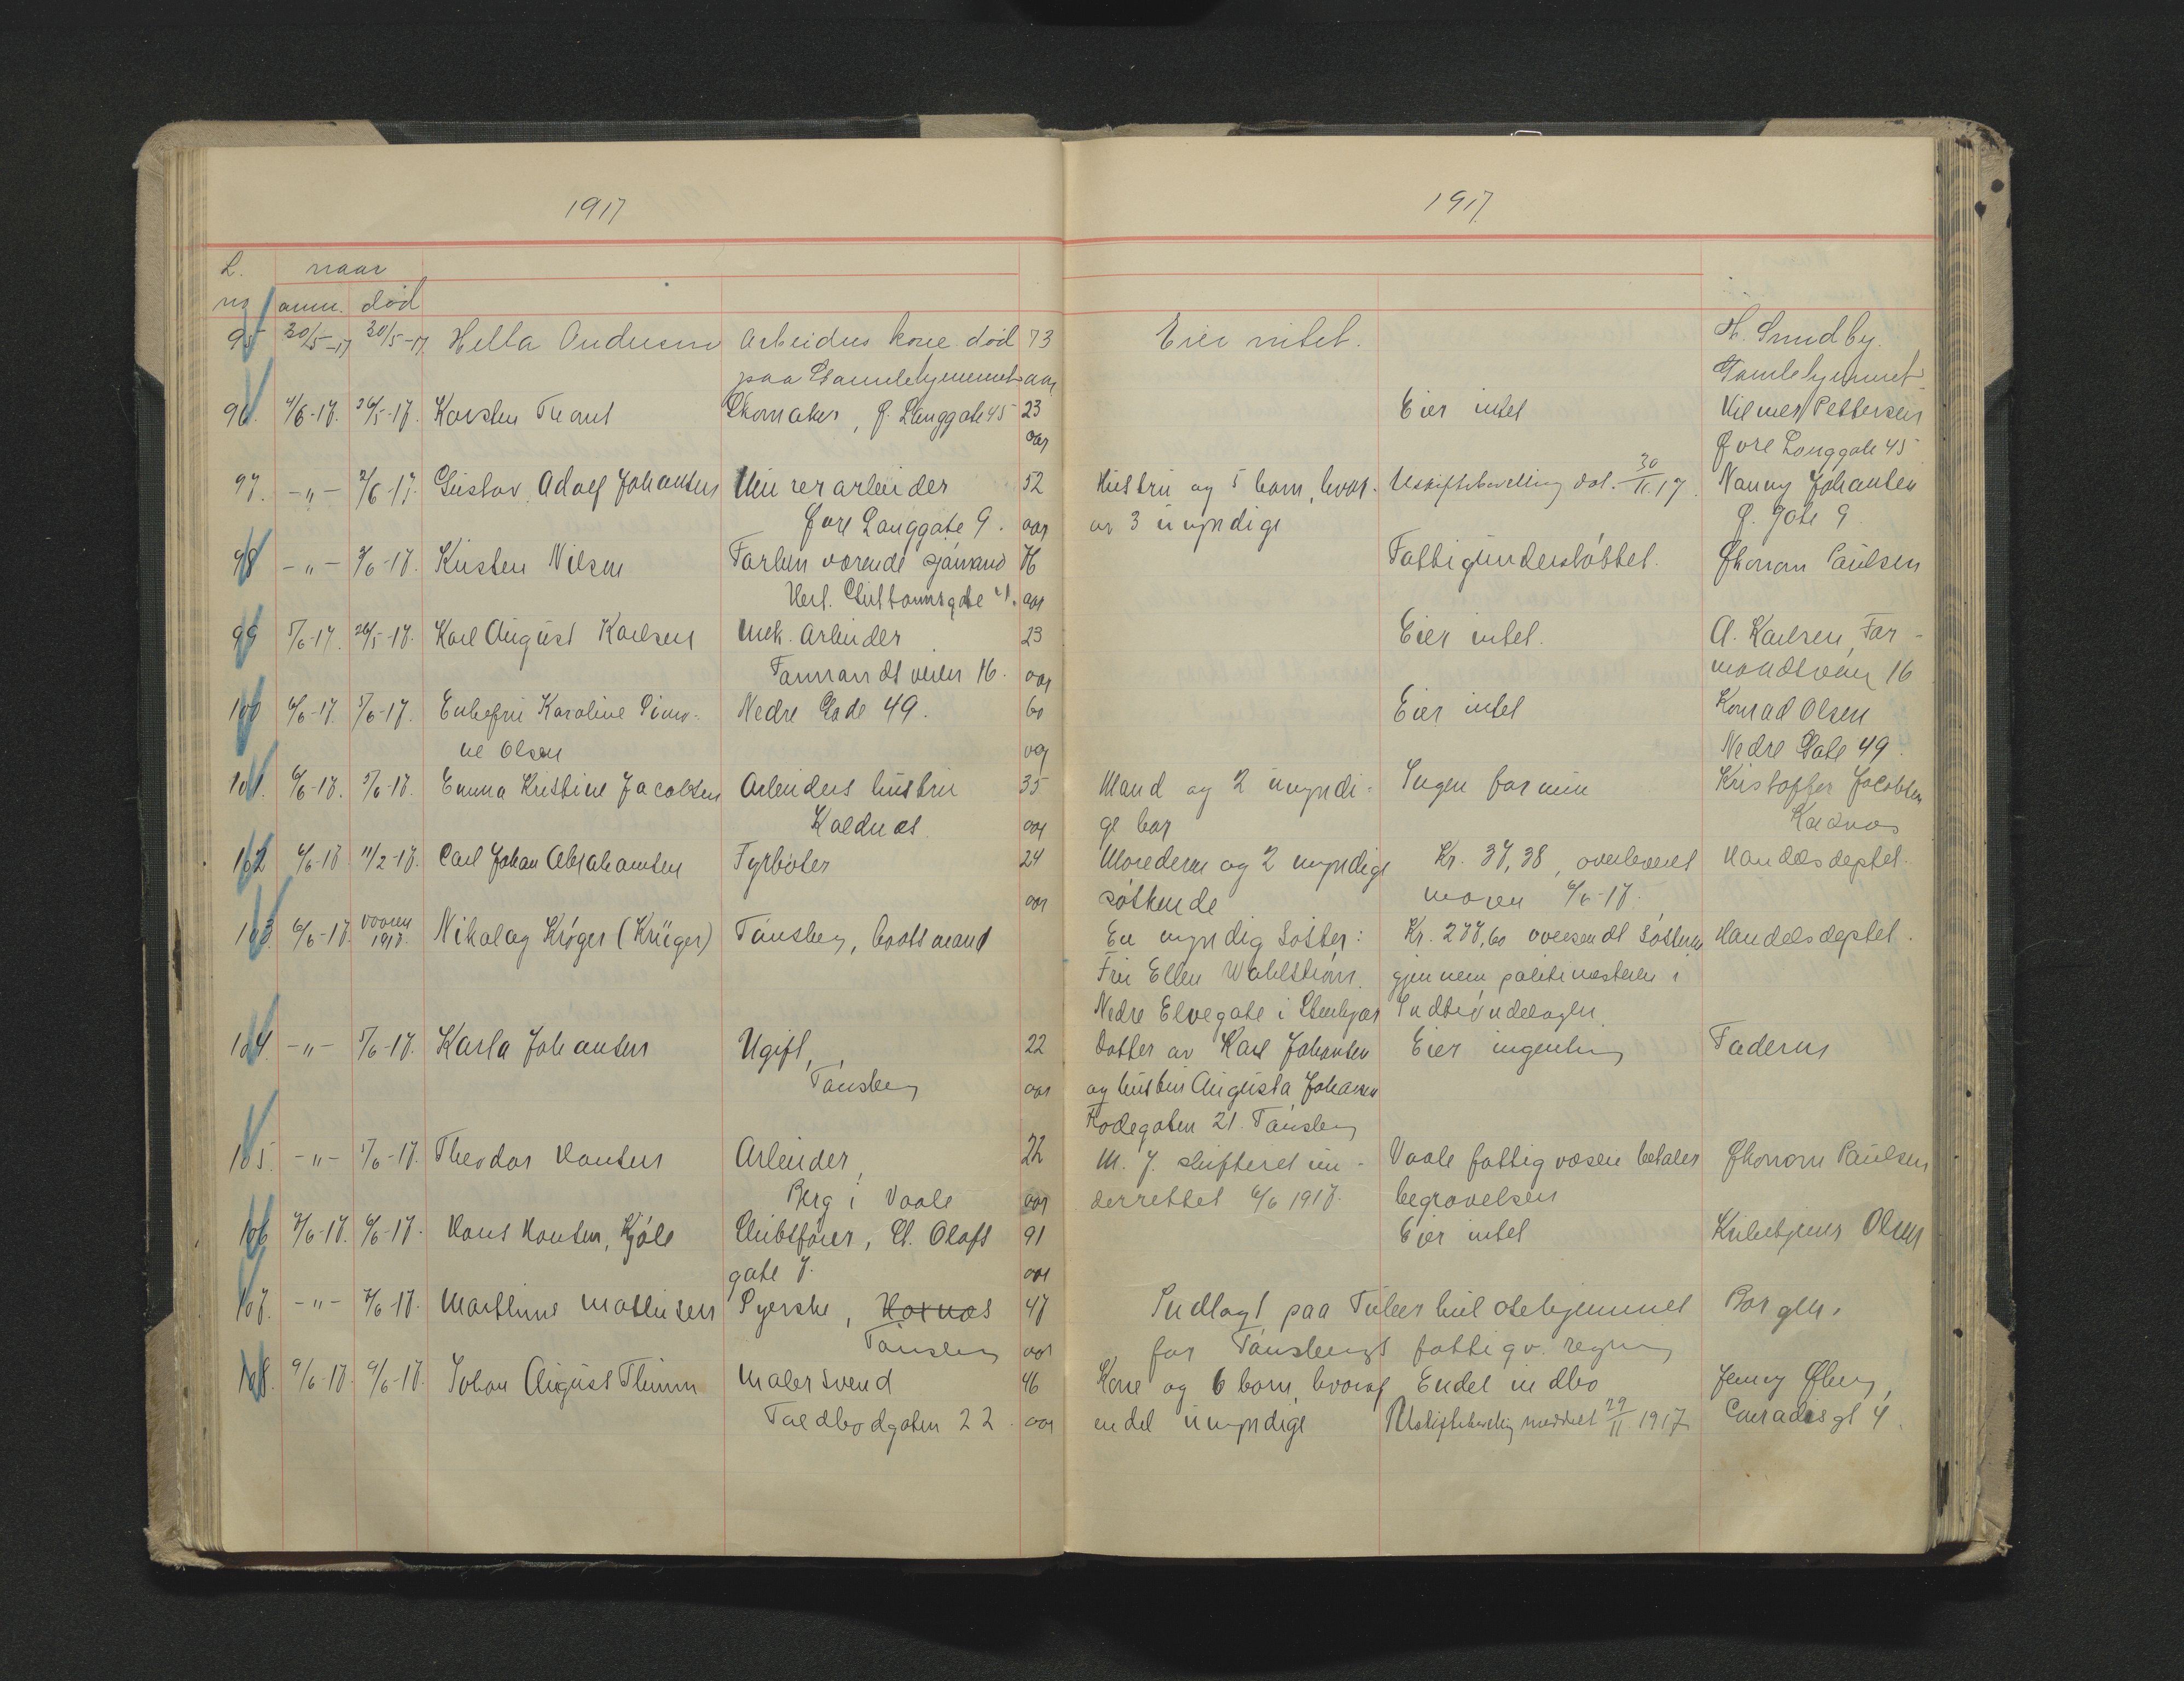 1917
1917
L. naar
no anm. död
95 30/5-17 30/5-17. Hella Andersen Arbeiders kone död 73 Eier intet. H. Sundby.
paa Gamlehjemmet aar Gamlehjemmet
96. 4/6-17. 26/5-17. Karsten Skomaker, Ø. Langgate 45 23 Eier intet Hilmer Pettersen
aar Øvre Langgate 45
97. -"- 2/6-17. Gustav Adolf Johansen Murerarbeider 52 Hustru og 5 barn, hvor- Uskiftebevilling dat. 30/11.17. Nanny Johansen
Øvre Langgate 9. aar av 3 umyndige Ø. Gate 9
98 -"- 3/6-17. Kristen Nilsen Forhenværende sjømand Fattigunderstøttet. Økonom Paulsen
aar
99 5/6-17. 26/5-17. Karl August Karlsen Mek. Arbeider 23 Eier intet. A. Karlsen, Far-
Farmandsveien 16. aar mandsveien 16
100 6/6-17. 5/6-17. Enkefru Karoline Simo- Nedre Gade 49. 60 Eier intet Konrad Olsen
ne Olsen aar Nedre Gate 49.
101. 6/6-17. 5/6-17. Emma Kristine Jacobsen Arbeiders hustru 35 Mand og 2 umyndi- Ingen formue Kristoffer Jacobsen
Kaldnes. aar ge bar Kaldnes
102 6/6-17 11/2-17. Carl Johan Abrahamsen Fyrbøter 24 Moderen og 2 umyndige Kr. 37,38, overleveret Handelsdeptet.
aar søskende moren 6/6-17.
103. 6/6-17 vaaren 1917. Nikolay Krøger (Krüger) Tønsberg, baatsmand En myndig søster: Kr. 277,60 oversendt søsteren Handelsdeptet.
Fru Ellen Wahlstrøm. gjennem politimesteren i
Nedre Elvegate i Stenkjær Indtrøndelagen.
104. -"- 5/6-17. Karla Johansen Ugift, 22 Datter av Karl Johansen Eier ingenting Faderen
Tønsberg aar og hustru Augusta Johansen
Kodegaten 21. Tønsberg
105. -"- 5/6-17. Theodor Hansen Arbeider, 22 M. J. skifteret un- Vaale fattigvæsen betaler Økonom Paulsen
Berg i Vaale aar derrettet 6/6 1917. begravelsen
106 7/6-17. 6/6-17. Hans Hansen, Kjøle Skibsfører, St. Olafs 91 Eier intet Olsen
gate 7. aar
107. -"- 7/6-17. Marthine Mathisen Syerske, Hoxnes 47 Indlagt paa Tuberkulosehjemmet Borgen.
Tønsberg aar for Tønsbergs fattigv. regning
108. 9/6-17. 9/6-17. Johan August Thimm Malersvend 46 Kone og 6 barn, hvorav Endel indbo Jenny Øberg,
Toldbodgaten 22. aar endel umyndige Uskiftebevilling meddelt 29/11 1917 Conradis gt 4.